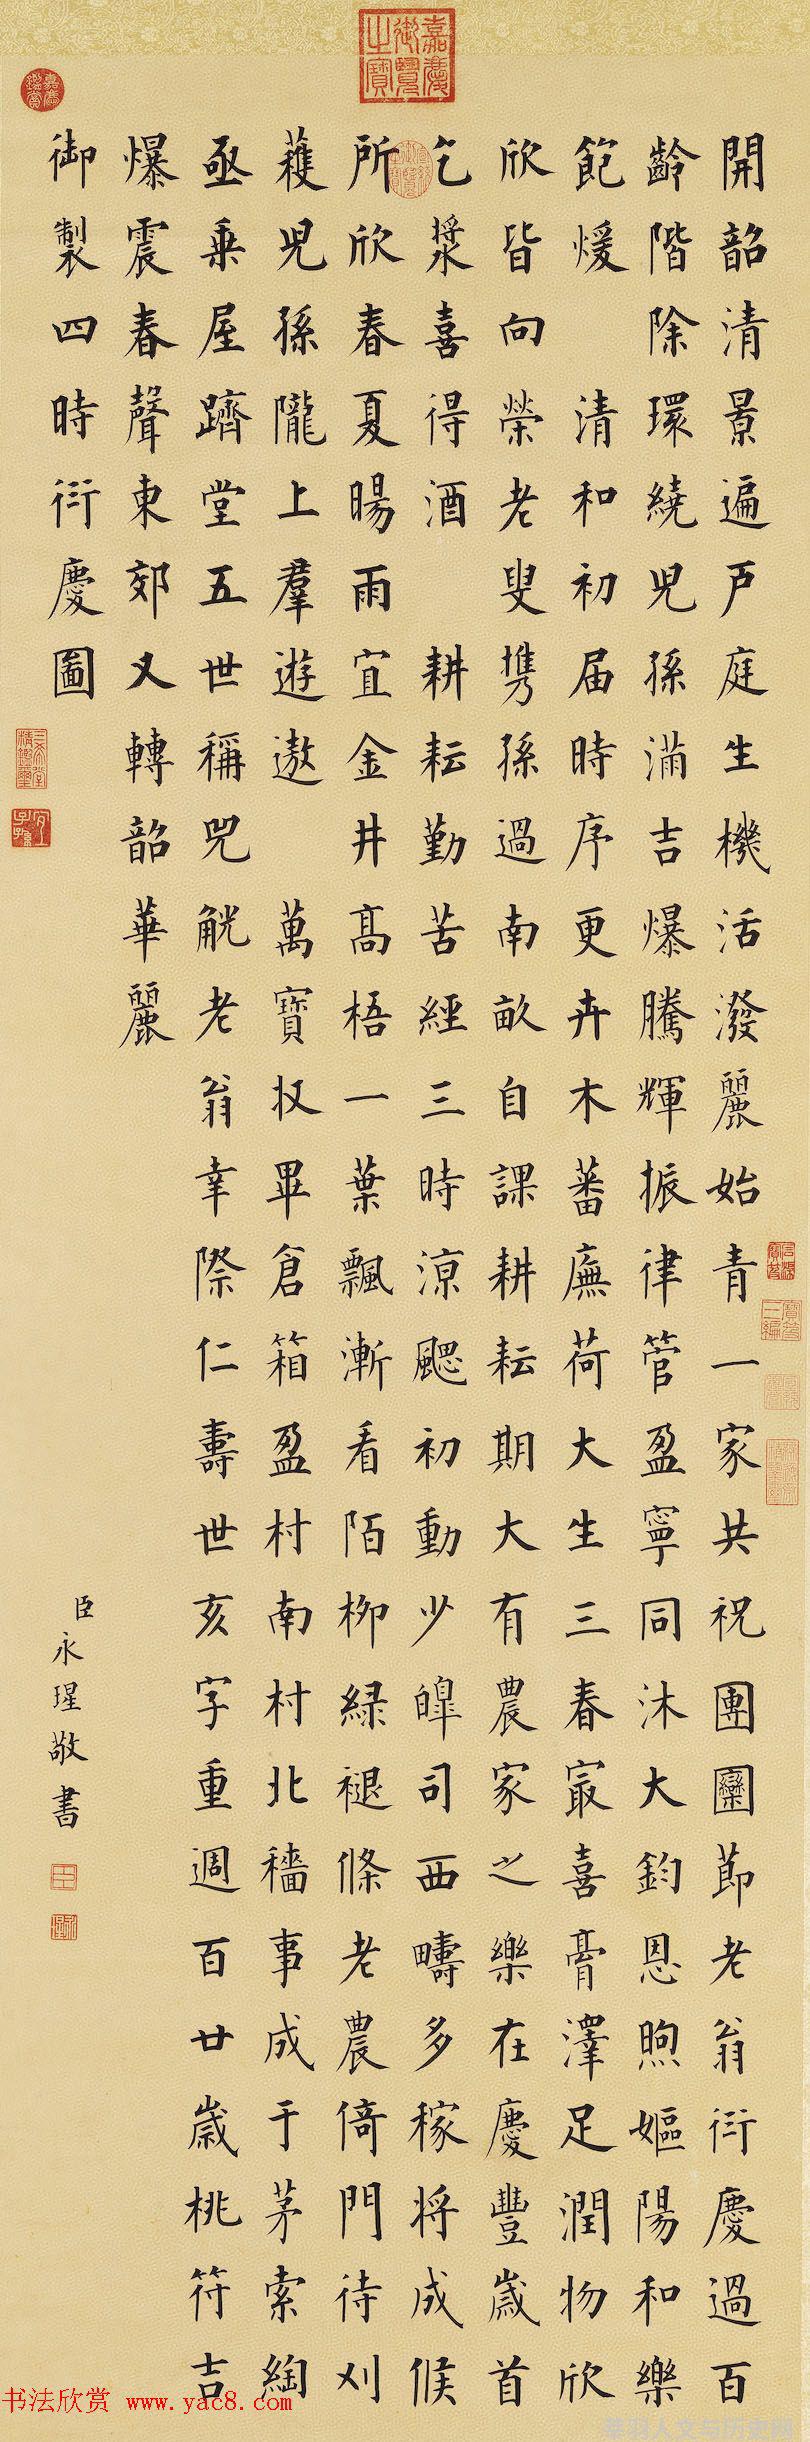 開韶清景遍戶庭生機活潑麗始青一家共祝團圞節老翁衍慶過百
齡階除環繞兒孫滿吉爆騰輝振律管盈寧同沐大鈞恩煦嫗陽和樂
飽煖 清和初届時序更卉木蕃廡荷大生三春㝡喜膏澤足潤物欣
欣皆向榮老叟携孫過南畝自課耕耘期大有農家之樂在慶豐歲首
乞漿喜得酒 耕耘勤苦經三時涼颸初動少皥司西疇多稼將成候
所欣春夏暘雨宜金井高梧一葉飄漸看陌柳綠褪條老農倚門待刈
穫兒孫隴上羣遊遨 萬寶收畢倉箱盈村南村北穡事成于茅索綯
亟乗屋躋堂五世稱兕觥老翁幸際仁壽世亥字重週百廿歲桃符吉
爆震春聲東郊又轉韶華麗
御製四時衍慶圖
臣永瑆敬書
嘉慶御覽之寶
嘉慶鑑賞
三希堂精鑑璽
宜子孫
书法欣赏 www.yac8.com